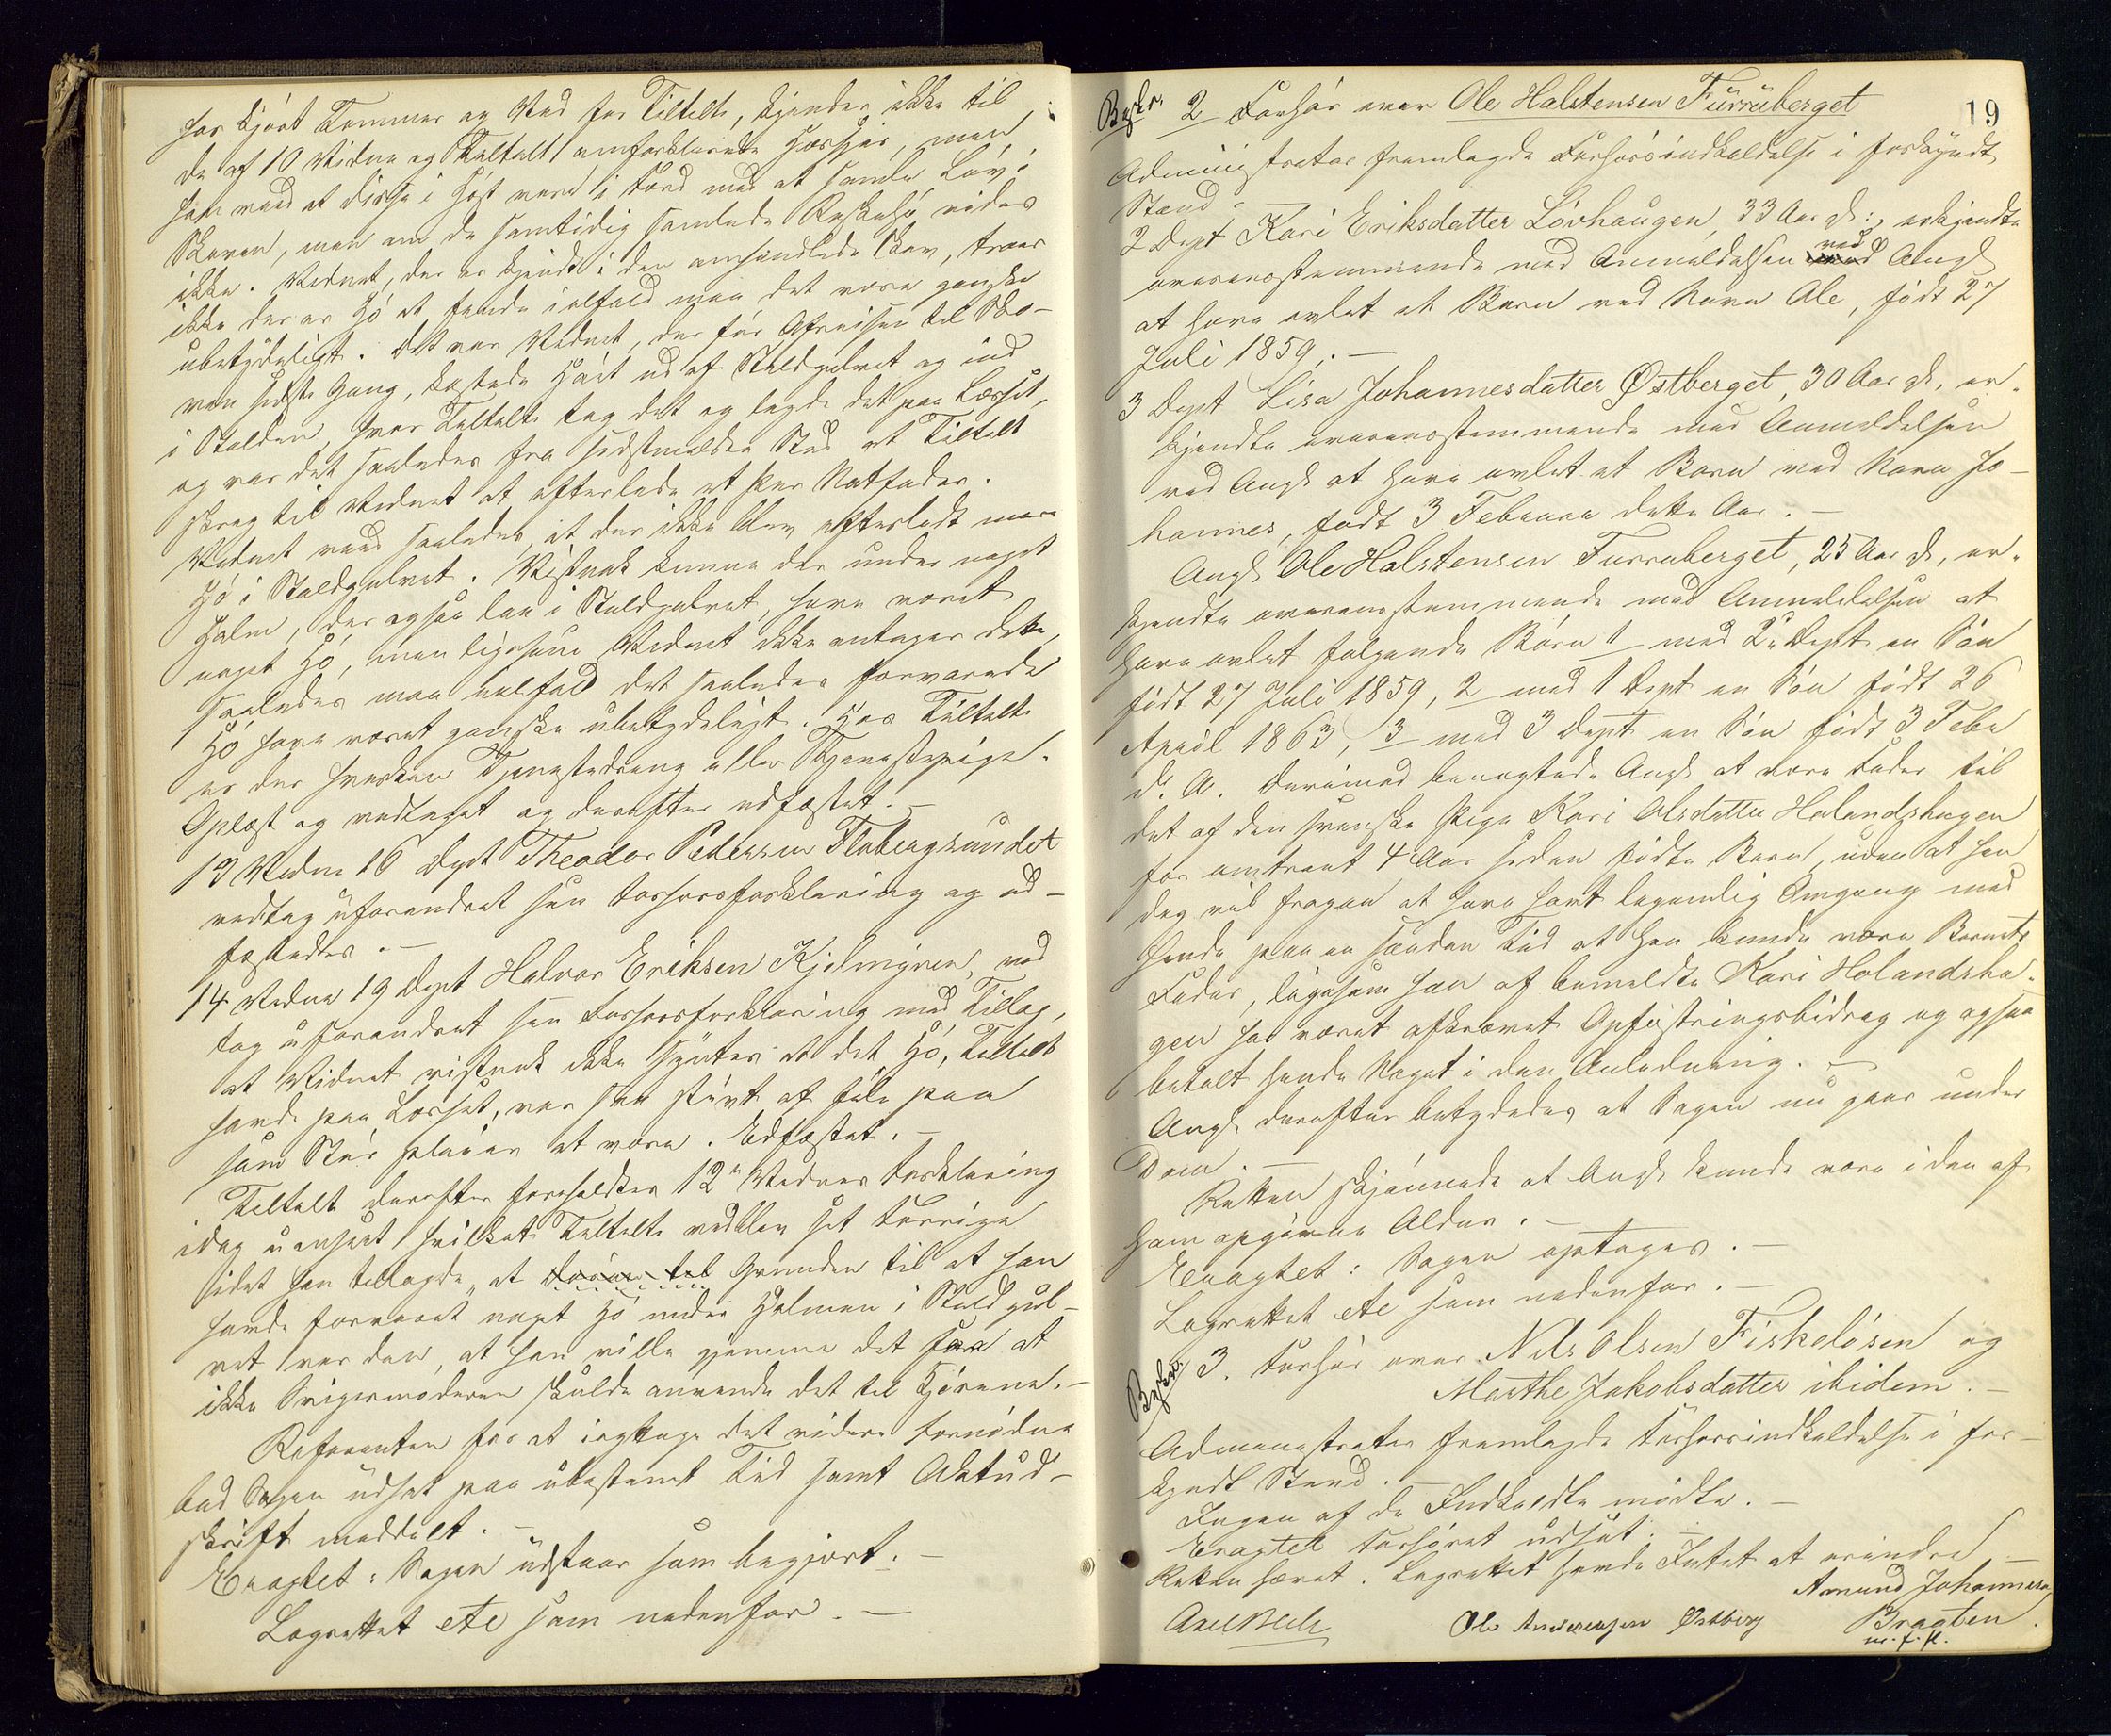 har kjørt Tømmer og Ved for Tiltalte, kjender ikke til
de af 10 Vidne og Tiltalt omforklarede Hæsjer, men
han veed at disse i Høst vare i Færd med at samle Løv i
Skoven, men om de samtidig samlede Raskehø vides
ikke. Vidnet, der er kjendt i den omhandlede Skov, troer
ikke der er Hø at finde ialfald maa det være ganske
ubetydeligt. Det var Vidnet, der før Afreisen til Sko-
ven sidste Gang, kastede Høiet ud af Staldgulvet og ind
i Stalden, hvor Tiltalte tog det og lagde det paa Læsset,
og var det saaledes fra sidstmeldte Sted at Tiltalt
sprag til Vidnet at efterlade et Par Natfoder.
Vidnet veed saaledes, at der ikke blev efterladt mere
Hø i Staldgulvet. Vistnok kunne der under noget
Halm, der ogsaa laa i Staldgulvet, have været
noget Hø, men ligesom Vidnet ikke antager dette,
saaledes maa ialfald det saaledes forvarede
Hø have været ganske ubetydeligt. Hos Tiltalte
er der hverken Tjenestedreng eller Tjenestepige.
Oplæst og vedtaget og derefter edfæstet. –
13 Vidne 16 Dept Theodor Pedersen Flobergsundet
vedtog uforandret sin Forhørsforklaring og ed-
fæstedes. –
14 Vidne 19 Dept Halvor Eriksen Kjelmyren, ved
tog uforandret sin Forhørsforklaring med Tillæg,
at Vidnet vistnok ikke syntes at det Hø, Tiltalte
havde paa Læsset, var saa stivt at føle paa
som Stør pleier at være. Edfæstet. –
Tiltalt derefter foreholdtes 12te Vidnes Forklaring
idag uanseet hvilket Tiltalte vedblev sit Forrige
idet han tillagde, at Grunden til at han
havde forvaret noget Hø under Halmen i Staldgul-
vet var den, at han ville gjemme det saa at
ikke Svigermoderen skulde anvende det til Kjørene. –
Referenten for at iagttage det videre fornødne
bad Sagen udsat paa ubestemt Tid samt Aktud-
skrift meddelt. –
Eragtet: Sagen udstaar som begjært. –
Lagrettet etc som nedenfor. –
19
Beskr. 2 Forhør over Ole Halstensen Furruberget
Administrator fremlagde Forhørsindkaldelse i forkyndt
Stand. –
2 Dept Kari Eriksdatter Løvhaugen, 33 Aar gl:, erkjendte
overensstemmende med Anmeldelsen ved Angl
at have avlet et Barn ved Navn Ole, født 27
Juli 1859. –
3 Dept Lisa Johannesdatter Østberget, 30 Aar gl, er-
kjendte overensstemmende med Anmeldelsen
ved Angl at have avlet et Barn ved Navn Jo-
hannes, født 3 Februar dette Aar. –
Angl Ole Halstensen Furruberget, 25 Aar gl, er-
kjendte overensstemmende med Anmeldelsen at
have avlet følgende Børn 1 med 2den Dept en Søn
født 27 Juli 1859, 2 med 1 Dept en Søn født 26
April 1863, 3 med 3 Dept en Søn født 3 Febr
d. A. Derimod benegtede Angl at være Fader til
det af den svenske Pige Kari Olsdatter Holandshagen
for omtrent 4 Aar siden fødte Barn, uden at han
dog vil fragaa at have havt legemlig Omgang med
hende paa en saadan Tid at han kunde være Barnets
Fader, ligesom han af bemeldte Kari Holandsha-
gen har været afkrævet Opfostringsbidrag og ogsaa
betalt hende Noget i den Anledning. –
Angl derefter betydedes, at Sagen nu gaar under
Dom. –
Retten skjønnede at Angl kunde være i den af
ham opgivne Alder. –
Eragtet: Sagen optages. –
Lagrettet etc som nedenfor. –
Beskr. 3. Forhør over Nils Olsen Fiskeløsen og
Marthe Jakobsdatter ibidem. –
Administrator fremlagde Forhørsindkaldelse i for-
kyndt Stand. –
Ingen af de Indkaldte mødte. –
Eragtet Forhøret udsat. –
Retten hævet. Lagrettet havde Intet at erindre –
Axel Blehr Ole Andersen Østberg Amund Johannesen
Bragten
m. f. P.